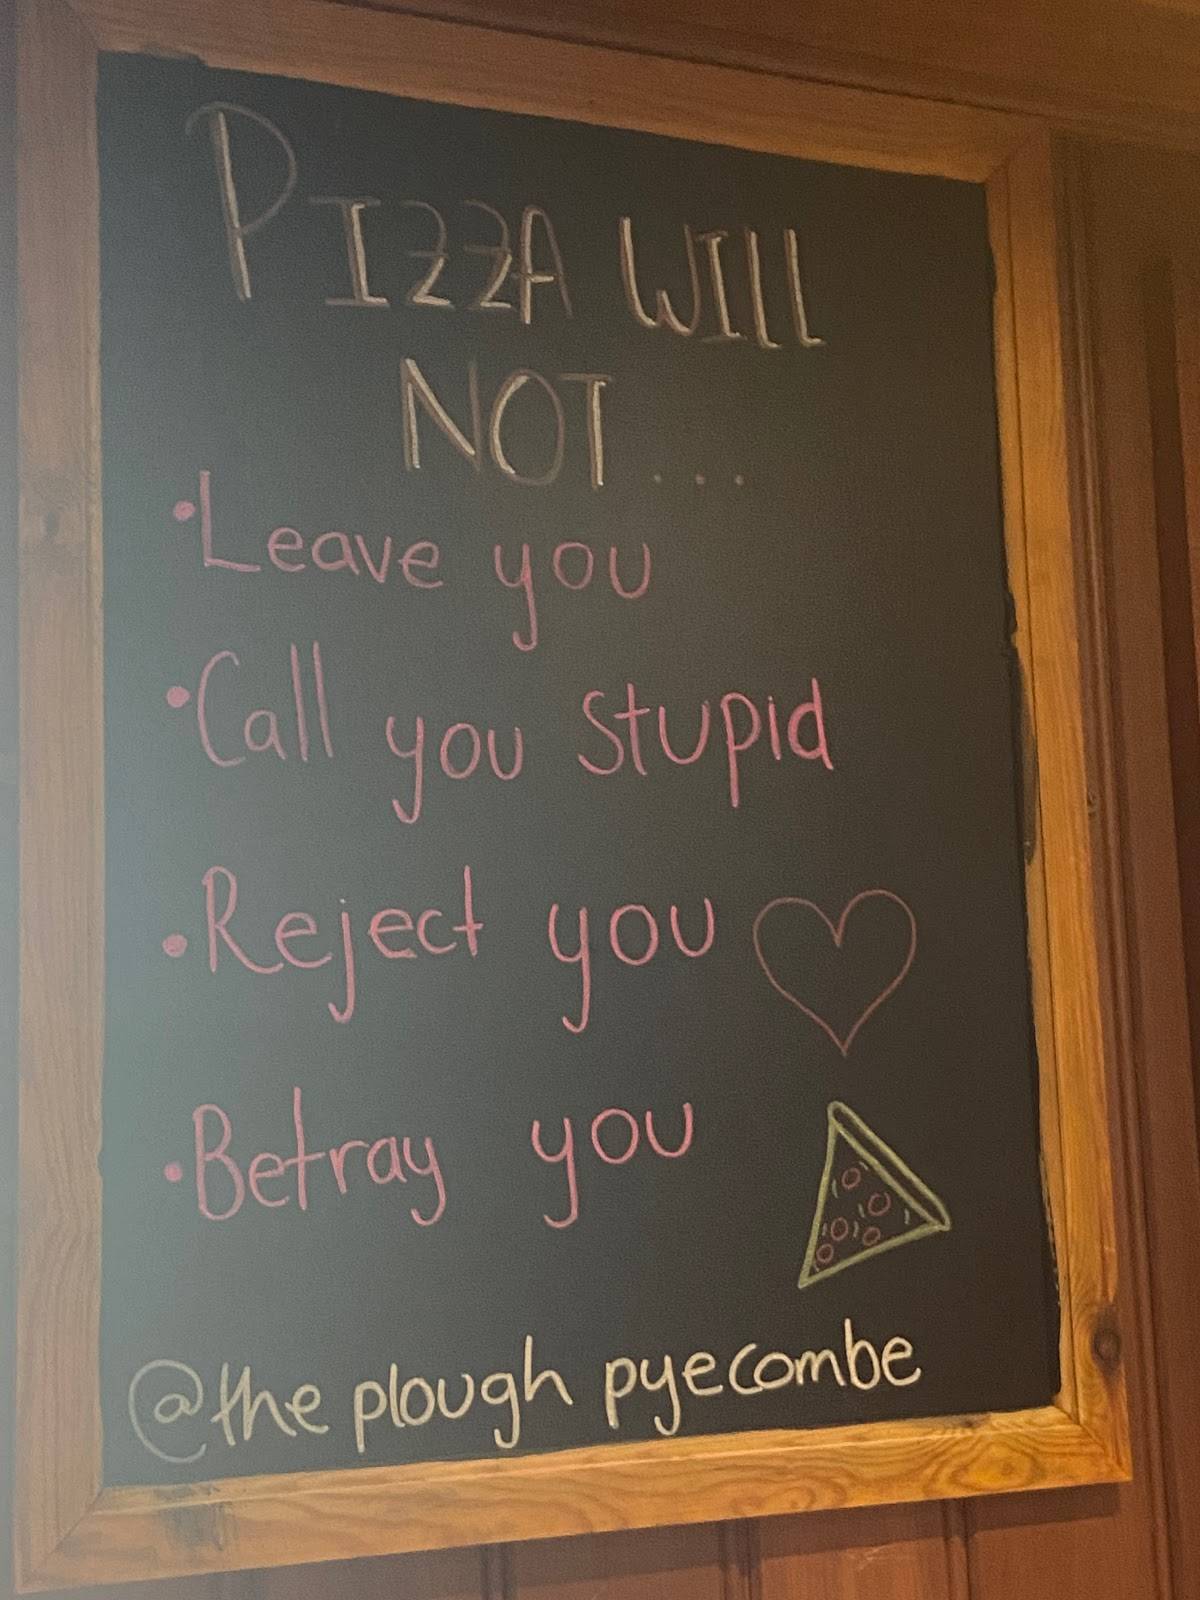 PIZZA WILL
NOT...
•Leave you
•Call you stupid
•Reject you
•Betray you
@the plough pyecombe